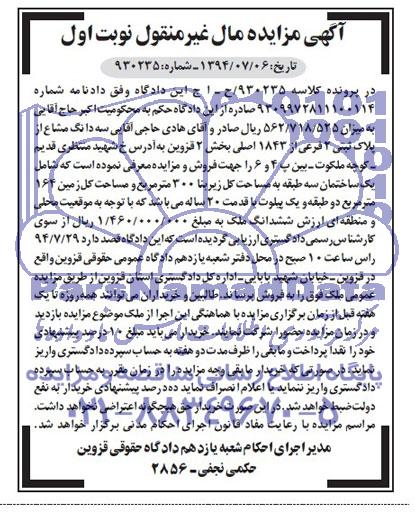 آگهی مزایده مال غیرمنقول نوبت اول
تاریخ: ۱۳۹۴/۰۷/۰۶ـ شماره: ۹۳۰۲۳۵
در پرونده کلاسه ۹۳۰۲۳۵/ح ـ ا ج این دادگاه وفق دادنامه شماره
۹۳۰۹۹۷۲۸۱۱۱۰۰۱۱۴ صادره از این دادگاه حکم به محکومیت اکبر حاج آقایی
به میزان ۵۶۲/۷۱۸/۵۲۵ ریال صادر و آقای هادی حاجی آقایی سه دانگ مشاع از
پلاک ثبتی ۲ فرعی از ۱۸۴۳ اصلی بخش ۳ قزوین به آدرس خ شهید منتظری قدیم
ـ کوچه ملکوت ـ بین ب ۴ و ۶ را جهت فروش و مزایده معرفی نموده است که شامل
یک ساختمان سه طبقه به مساحت کل زیربنا ۳۰۰ مترمربع و مساحت کل زمین ۱۶۴
مترمربع دو طبقه و یک پیلوت با قدمت ۲۰ ساله می باشد که با توجه به موقعیت محلی
و منطقه ای ارزش ششدانگ ملک به مبلغ ۱/۴۶۰/۰۰۰/۰۰۰ ریال از سوی
کارشناس رسمی دادگستری ارزیابی گردیده است که این دادگاه قصد دارد ۹۴/۷/۲۹
راس ساعت ۱۰ صبح در محل دفتر شعبه یازدهم دادگاه عمومی حقوقی قزوین واقع
در قزوین ـ خیابان شهید بابایی ـ اداره کل دادگستری استان قزوین از طریق مزایده
عمومی ملک فوق را به فروش برساند. طالبین و خریداران می توانند همه روزه تا یک
هفته قبل از زمان برگزاری مزایده با هماهنگی این اجرا از ملک موضوع مزایده بازدید
و در زمان مزایده حضورا شرکت نمایند. خریدار می باید مبلغ ۱۰ درصد پیشنهادی
خود را نقدا پرداخت و مابقی را ظرف مدت دو هفته به حساب سپرده دادگستری واریز
نماید. در صورتی که خریدار مابقی وجه مزایده را در زمان مقرر به حساب سپرده
دادگستری واریز ننماید یا اعلام انصراف نماید ده درصد پیشنهادی خریدار به نفع
دولت ضبط خواهد شد. در این صورت خریدار حق هیچگونه اعتراضی نخواهد داشت.
مراسم مزایده با رعایت مفاد قانون اجرای احکام مدنی برگزار خواهد شد.
مدیر اجرای احکام شعبه یازدهم دادگاه حقوقی قزوین
حکمی نجفی ـ ۲۸۵۶
ParsNamadData
۰۲۱-۸۸۳۴۹۶۷۰-۵